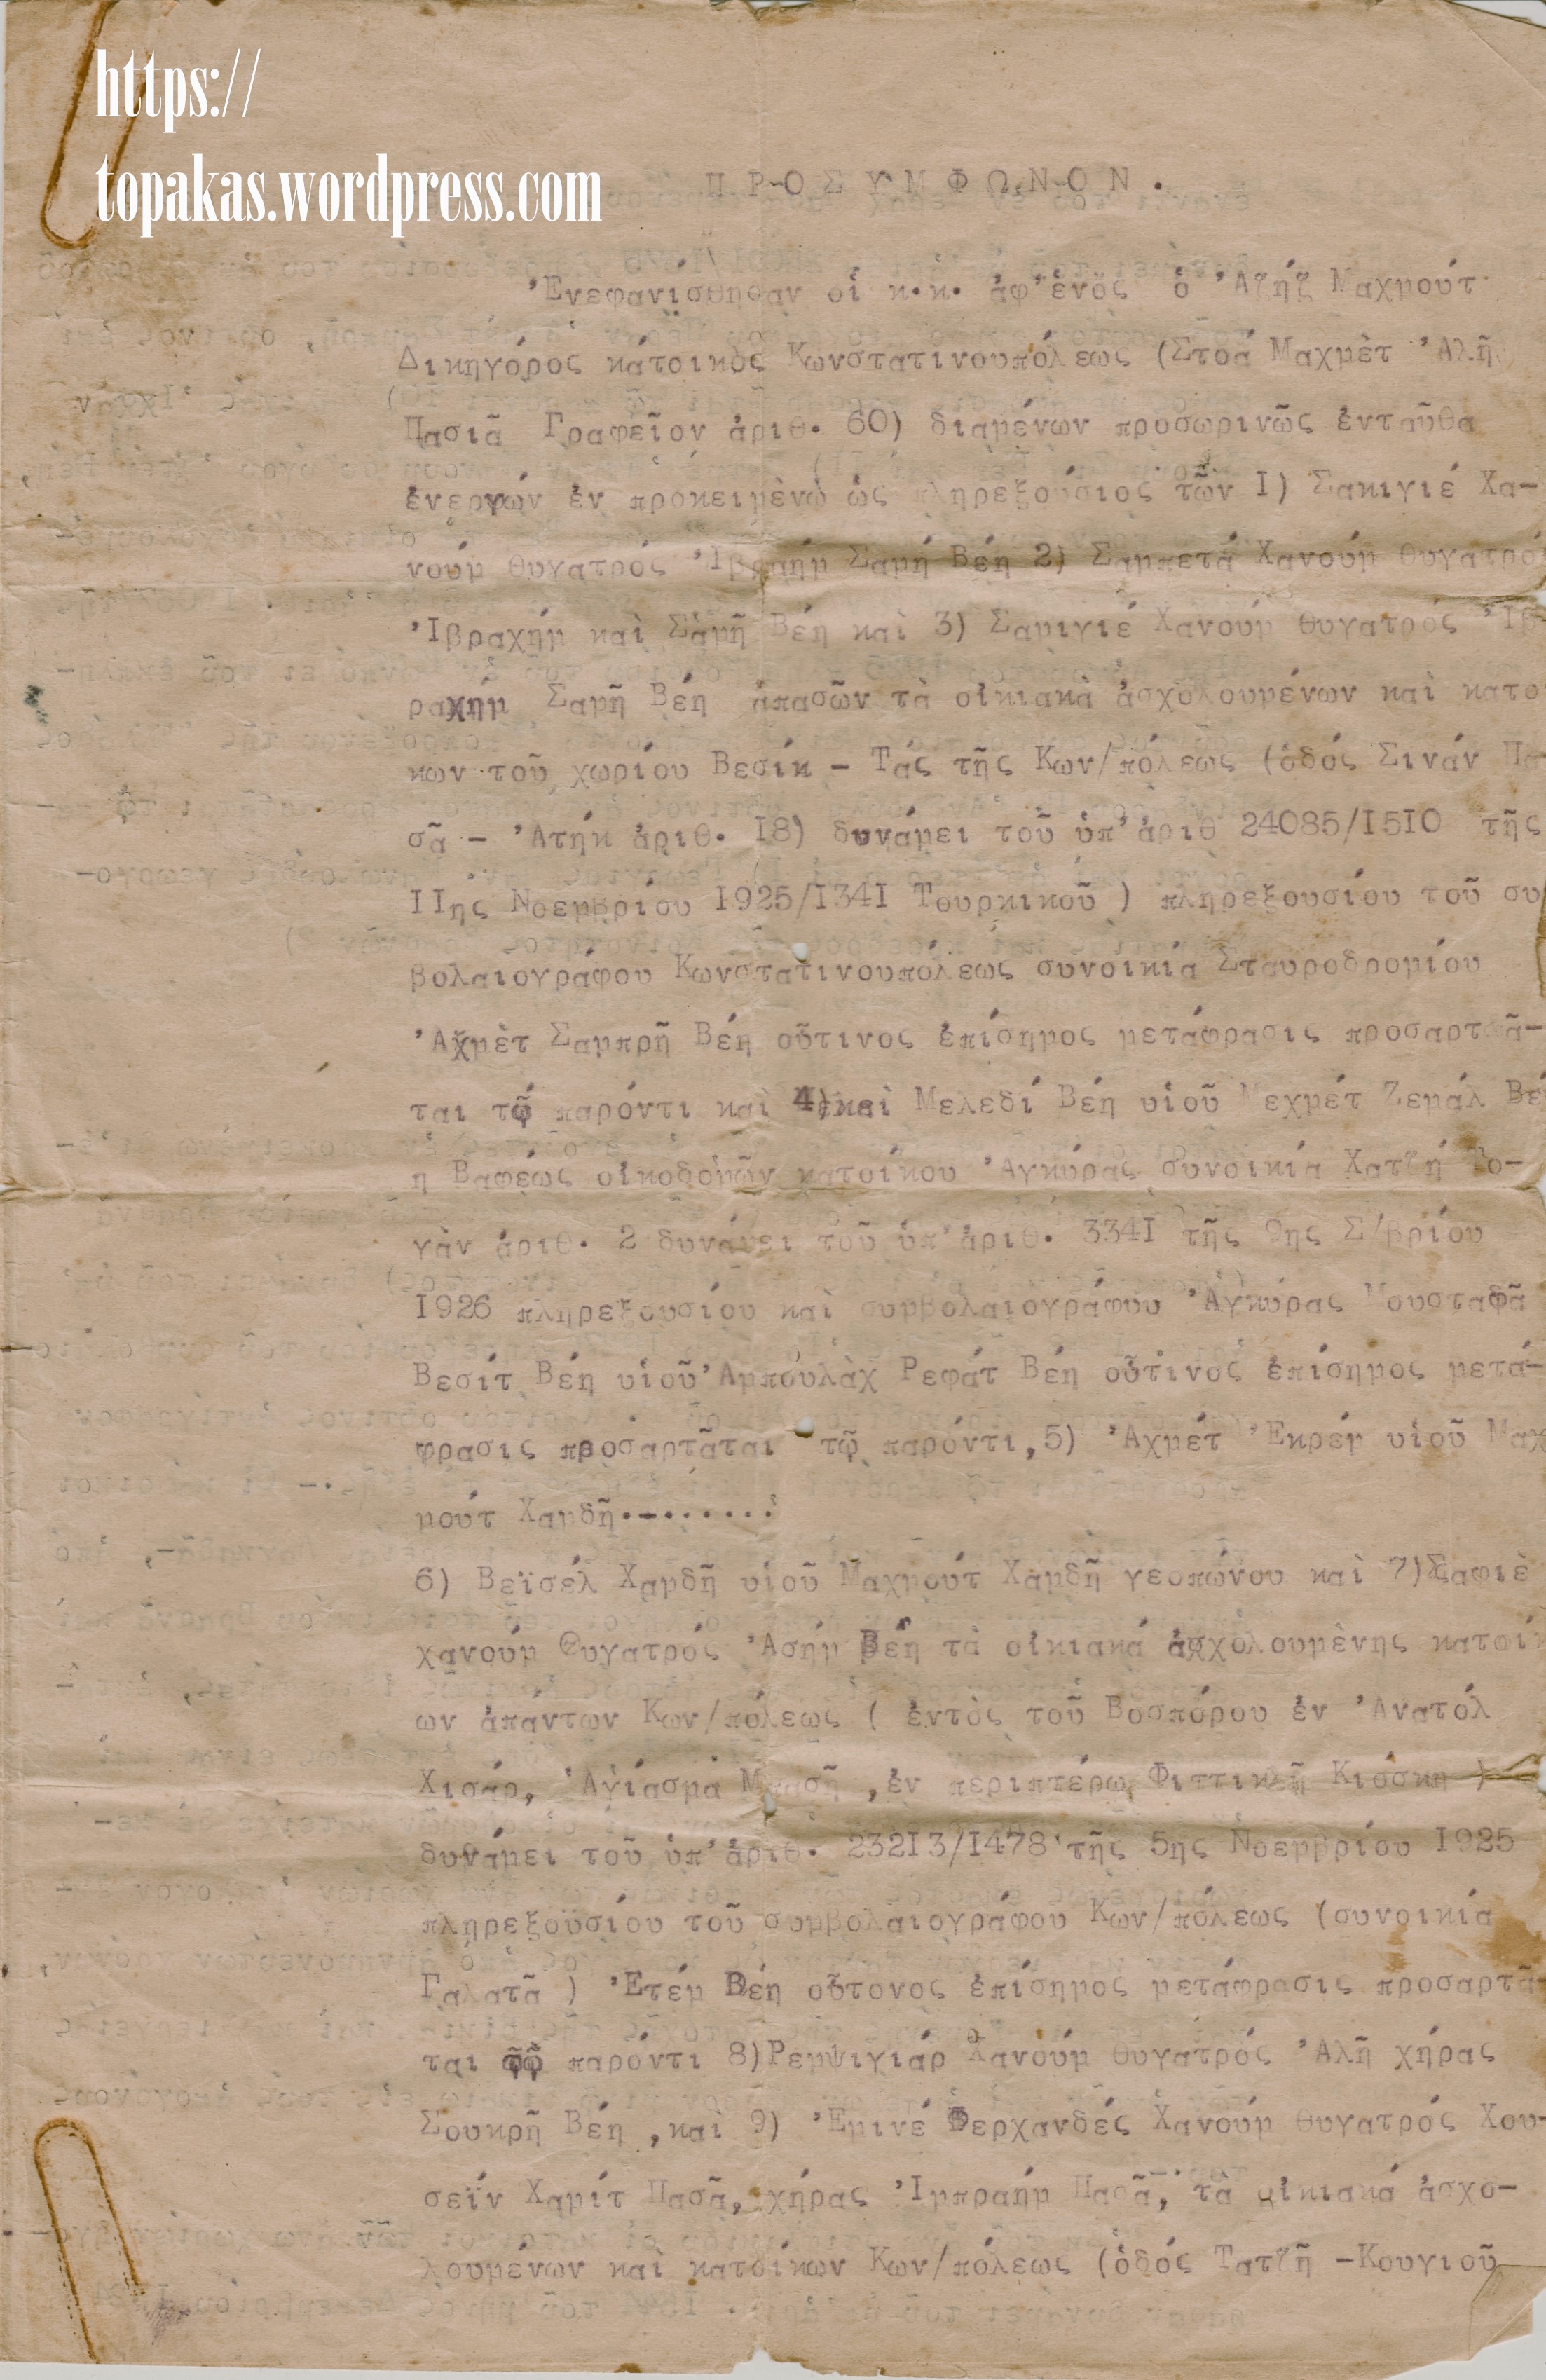 https://
topakas.wordpress.com
ΠΡΟΣΥΜΦΩΝΟΝ.
Ἐνεφανίσθησαν οἱ κ.κ. ἀφ'ἑνός ὁ Ἀζήζ Μαχμούτ
Δικηγόρος κάτοικος Κωνσταντινουπόλεως (Στοά Μαχμὲτ Ἀλῆ
Πασιᾶ Γραφεῖον ἀριθ. 60) διαμένων προσωρινῶς ἐνταῦθα
ἐνεργών ἐν προκειμὲνῳ ὡς πληρεξούσιος τῶν Ι) Σακιγιέ Χα-
νούμ θυγατρός Ἰβραήμ Σαμή Βέη 2) Σαμπετά Χανούμ θυγατρός
Ἰβραχήμ καὶ Σάμῆ Βέη καὶ 3) Σαμιγιέ Χανούμ θυγατρός Ἰβ-
ραχήμ Σαμῆ Βέη ἁπασῶν τὰ οἰκιακὰ ἀσχολουμένων καὶ κατοί
κων τοῦ χωρίου Βεσίκ - Τάς τῆς Κων/πόλεως (ὁδός Σινάν Πα
σᾶ - Ἀτήκ ἀριθ. Ι8) δυνάμει τοῦ ὑπ'ἀριθ 24085/Ι5Ι0 τῆς
ΙΙης Νοεμβρίου Ι925/Ι34Ι Τουρκικοῦ ) πληρεξουσίου τοῦ συ
βολαιογράφου Κωνστατινουπόλεως συνοικία Σταυροδρομίου
Ἀχμὲτ Σαμπρῆ Βέη οὗτινος ἐπίσημος μετάφρασις προσαρτᾶ-
ται τῷ παρόντι καὶ 4) Μελεδί Βέη υἱοῦ Μεχμέτ Ζεμάλ Βέ
η Βαφέως οἰκοδομῶν κατοίκου Ἀγκύρας συνοικία Χατζή Το-
γὰν ἀριθ. 2 δυνάμει τοῦ ὑπ'ἀριθ. 334Ι τῆς 9ης Σ/βρίου
Ι926 πληρεξουσίου καὶ συμβολαιογράφου Ἀγκύρας Μουσταφᾶ
Βεσίτ Βέη υἱοῦ Ἀμπουλὰχ Ρεφάτ Βέη οὗτινος ἐπίσημος μετά-
φρασις προσαρτᾶται τῷ παρόντι, 5) Ἀχμέτ Ἐκρέμ υἱοῦ Μαχ
μούτ Χαμδῆ.-.......
6) Βεϊσέλ Χαμδῆ υἱοῦ Μαχμούτ Χαμδῆ γεοπώνου καὶ 7)Σαφιὲ
χανούμ θυγατρός Ἀσήμ Βέη τὰ οἰκιακά ἀσχολουμὲνης κατοίκ
ων ἁπάντων Κων/πόλεως ( ἐντὸς τοῦ Βοσπόρου ἐν Ἀνατόλ
Χισάρ, Ἁγίασμα Μπασῆ ,ἐν περιπτέρῳ Φιττικλῆ Κιόσκη )
δυνάμει τοῦ ὑπ'ἀριθ. 232Ι3/Ι478 τῆς 5ης Νοεμβρίου Ι925
πληρεξουσίου τοῦ συμβολαιογράφου Κων/πόλεως (συνοικία
Γαλατᾶ ) Ἐτέμ Βέη οὗτονος ἐπίσημος μετάφρασις προσαρτᾶ
ται τῷ παρόντι 8)Ρεμψιγιάρ Χανούμ θυγατρός Ἀλῆ χήρας
Σουκρῆ Βέη ,καὶ 9) Ἐμινέ Φερχανδές Χανούμ θυγατρός Χου-
σεϊν Χαμίτ Πασᾶ, χήρας Ἰμπραήμ Πασᾶ, τὰ οἰκιακά ἀσχο-
λουμένων καὶ κατοίκων Κων/πόλεως (ὁδός Τατζῆ -Κουγιοῦ